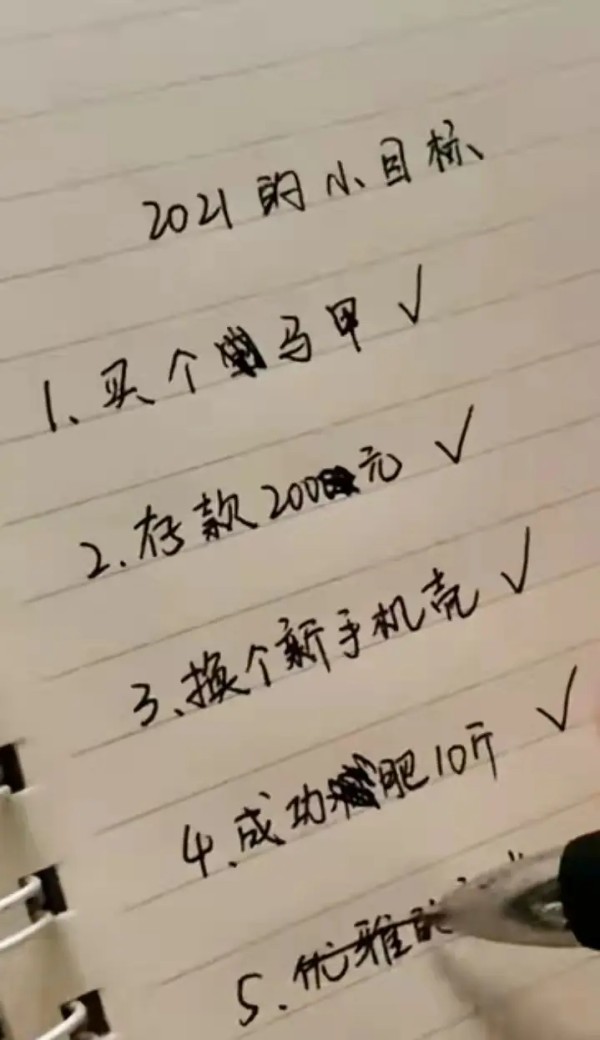 2021的小目标
1、买个马甲✓
2.存款200元✓
3、换个新手机壳✓
4.成功肥10斤✓
5.优雅的